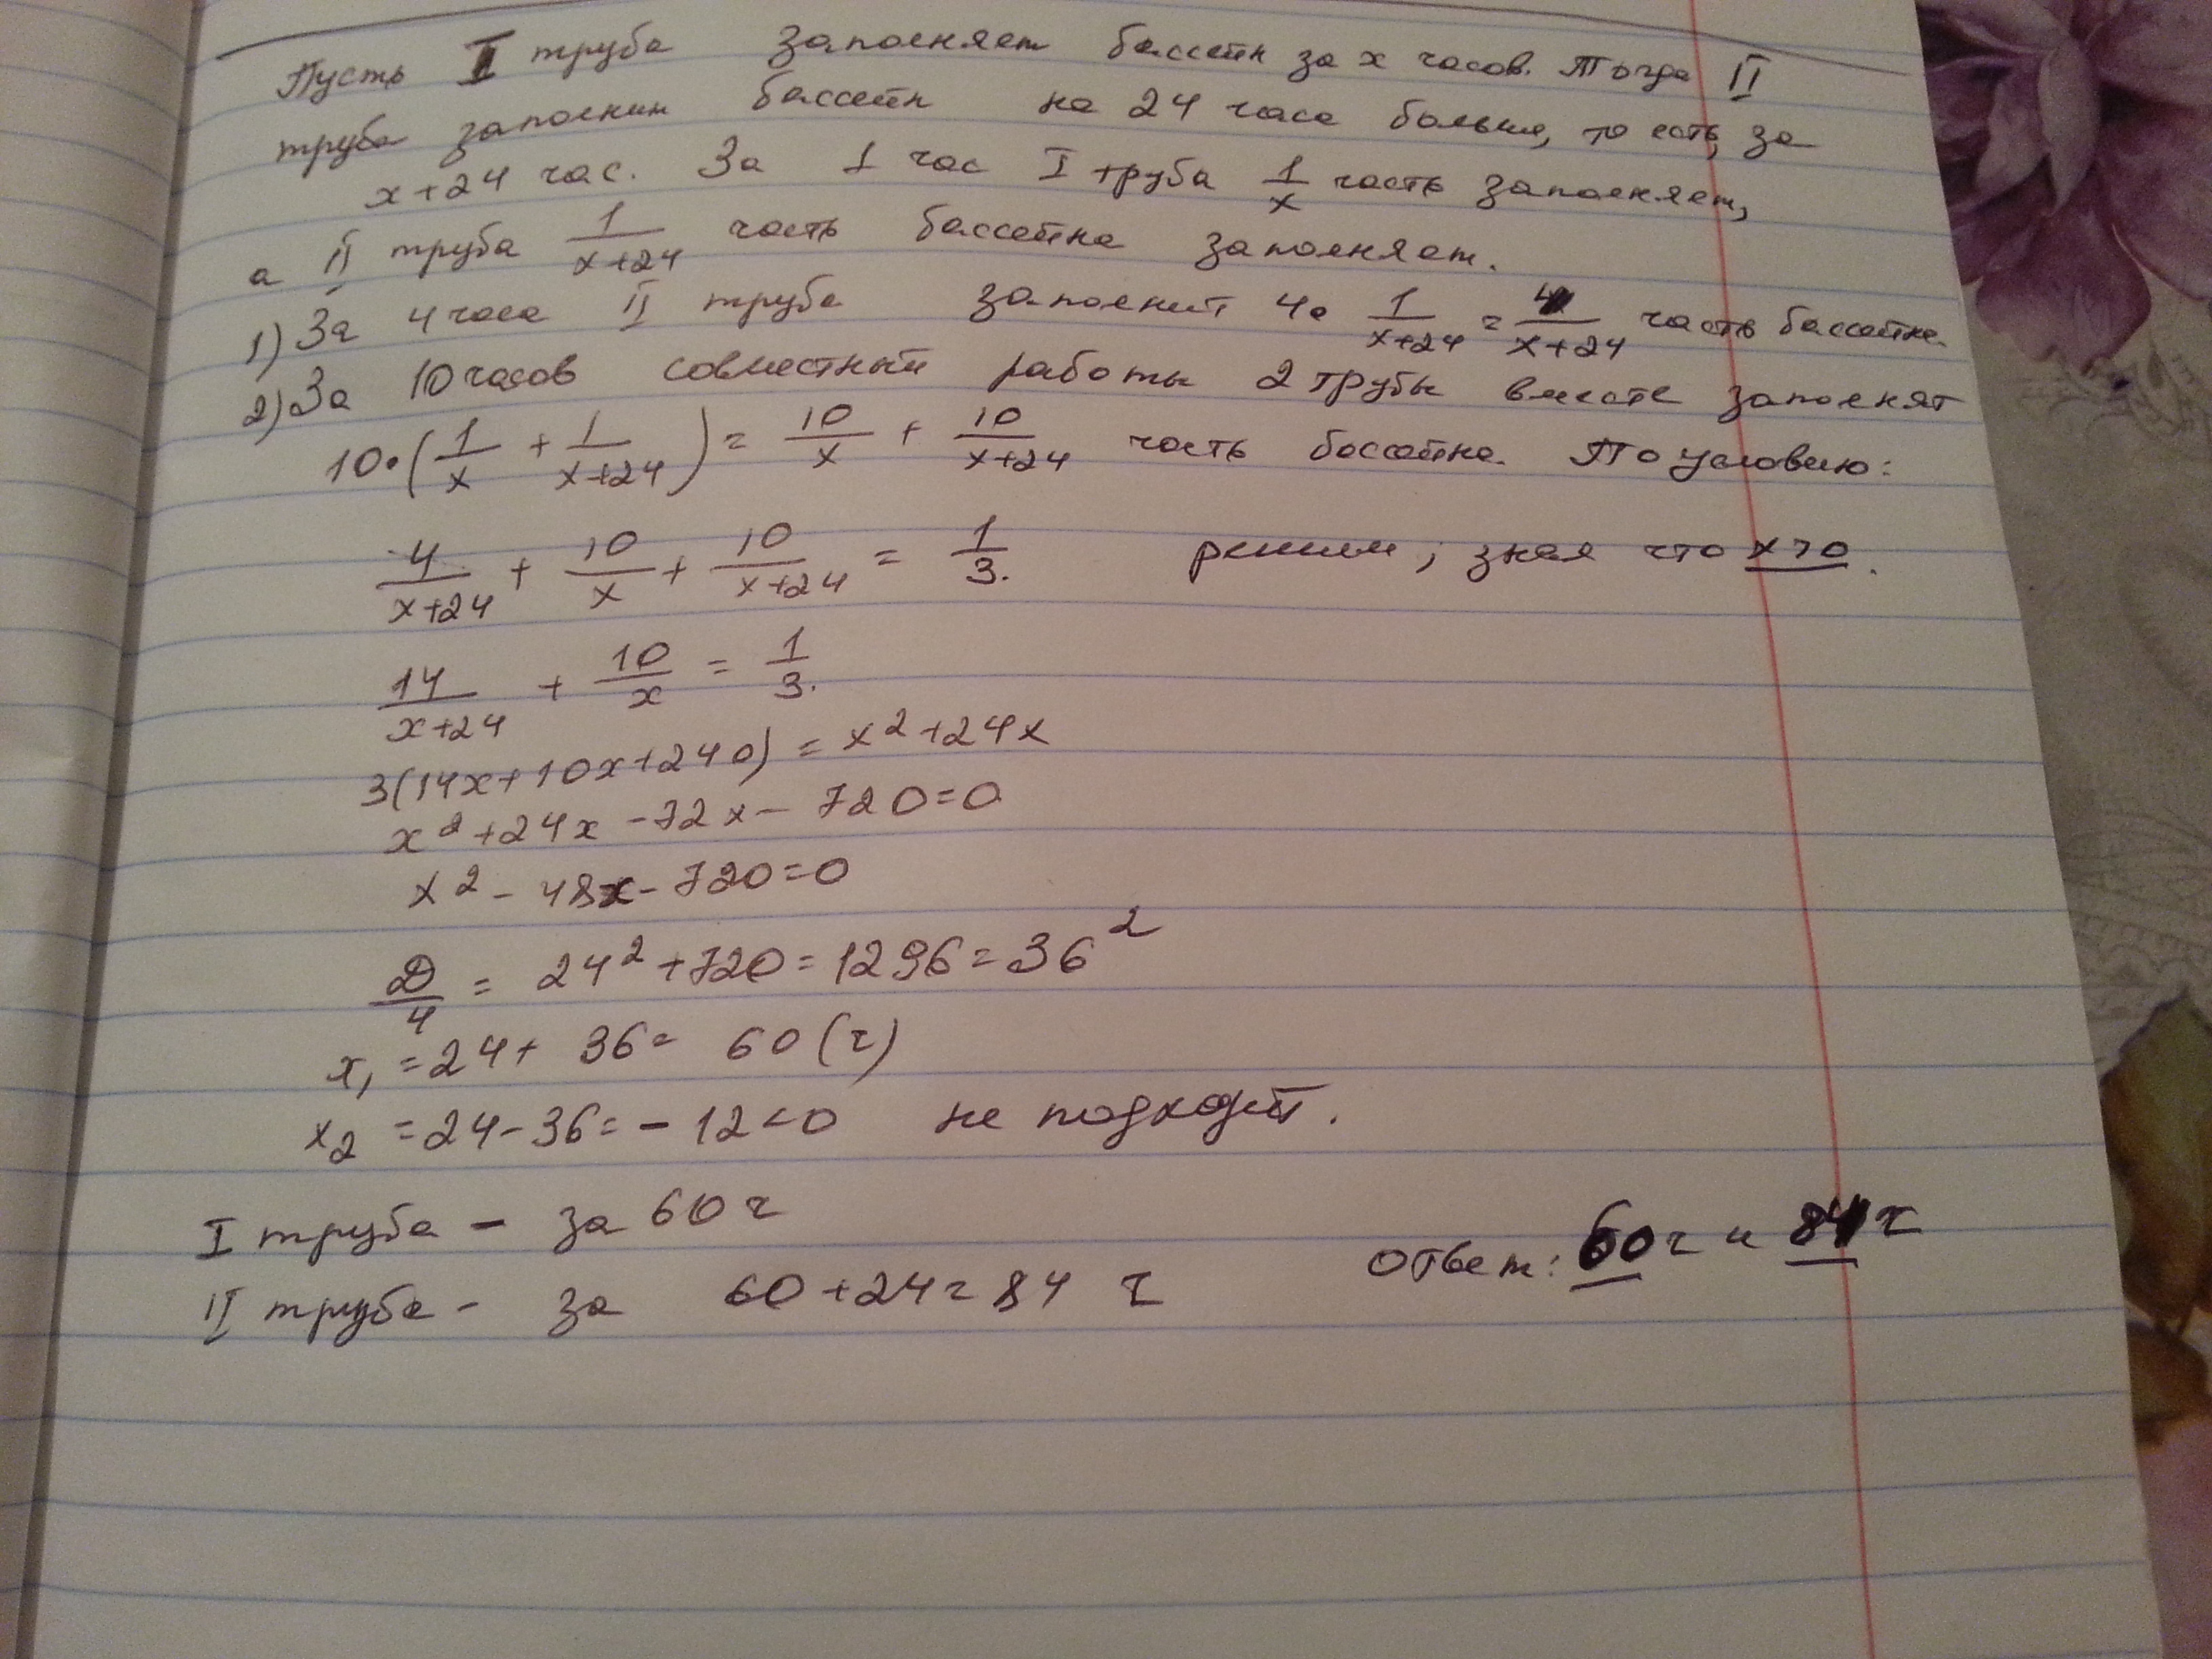 Пусть I труба заполняет бассейн за x часов. Тогда II
труба заполнит бассейн на 24 часа больше, то есть, за
x+24 час. За 1 час I труба 1/x часть заполняет,
а II труба 1/(x+24) часть бассейна заполняет.
1) За 4 часа II труба заполнит 4• 1/(x+24) = 4/(x+24) часть бассейна.
2) За 10 часов совместный работы 2 трубы вместе заполнят
10•(1/x + 1/(x+24)) = 10/x + 10/(x+24) часть бассейна. По условию:
4/(x+24) + 10/x + 10/(x+24) = 1/3. решим, зная что x>0.
14/(x+24) + 10/x = 1/3.
3(14x+10x+240) = x²+24x
x²+24x-72x-720=0
x²-48x-720=0
D/4 = 24²+720=1296=36²
x₁=24+36=60(ч)
x₂=24-36=-12<0 не подходит.
I труба - за 60 ч
II труба - за 60+24=84 ч
Ответ: 60 ч и 84 ч